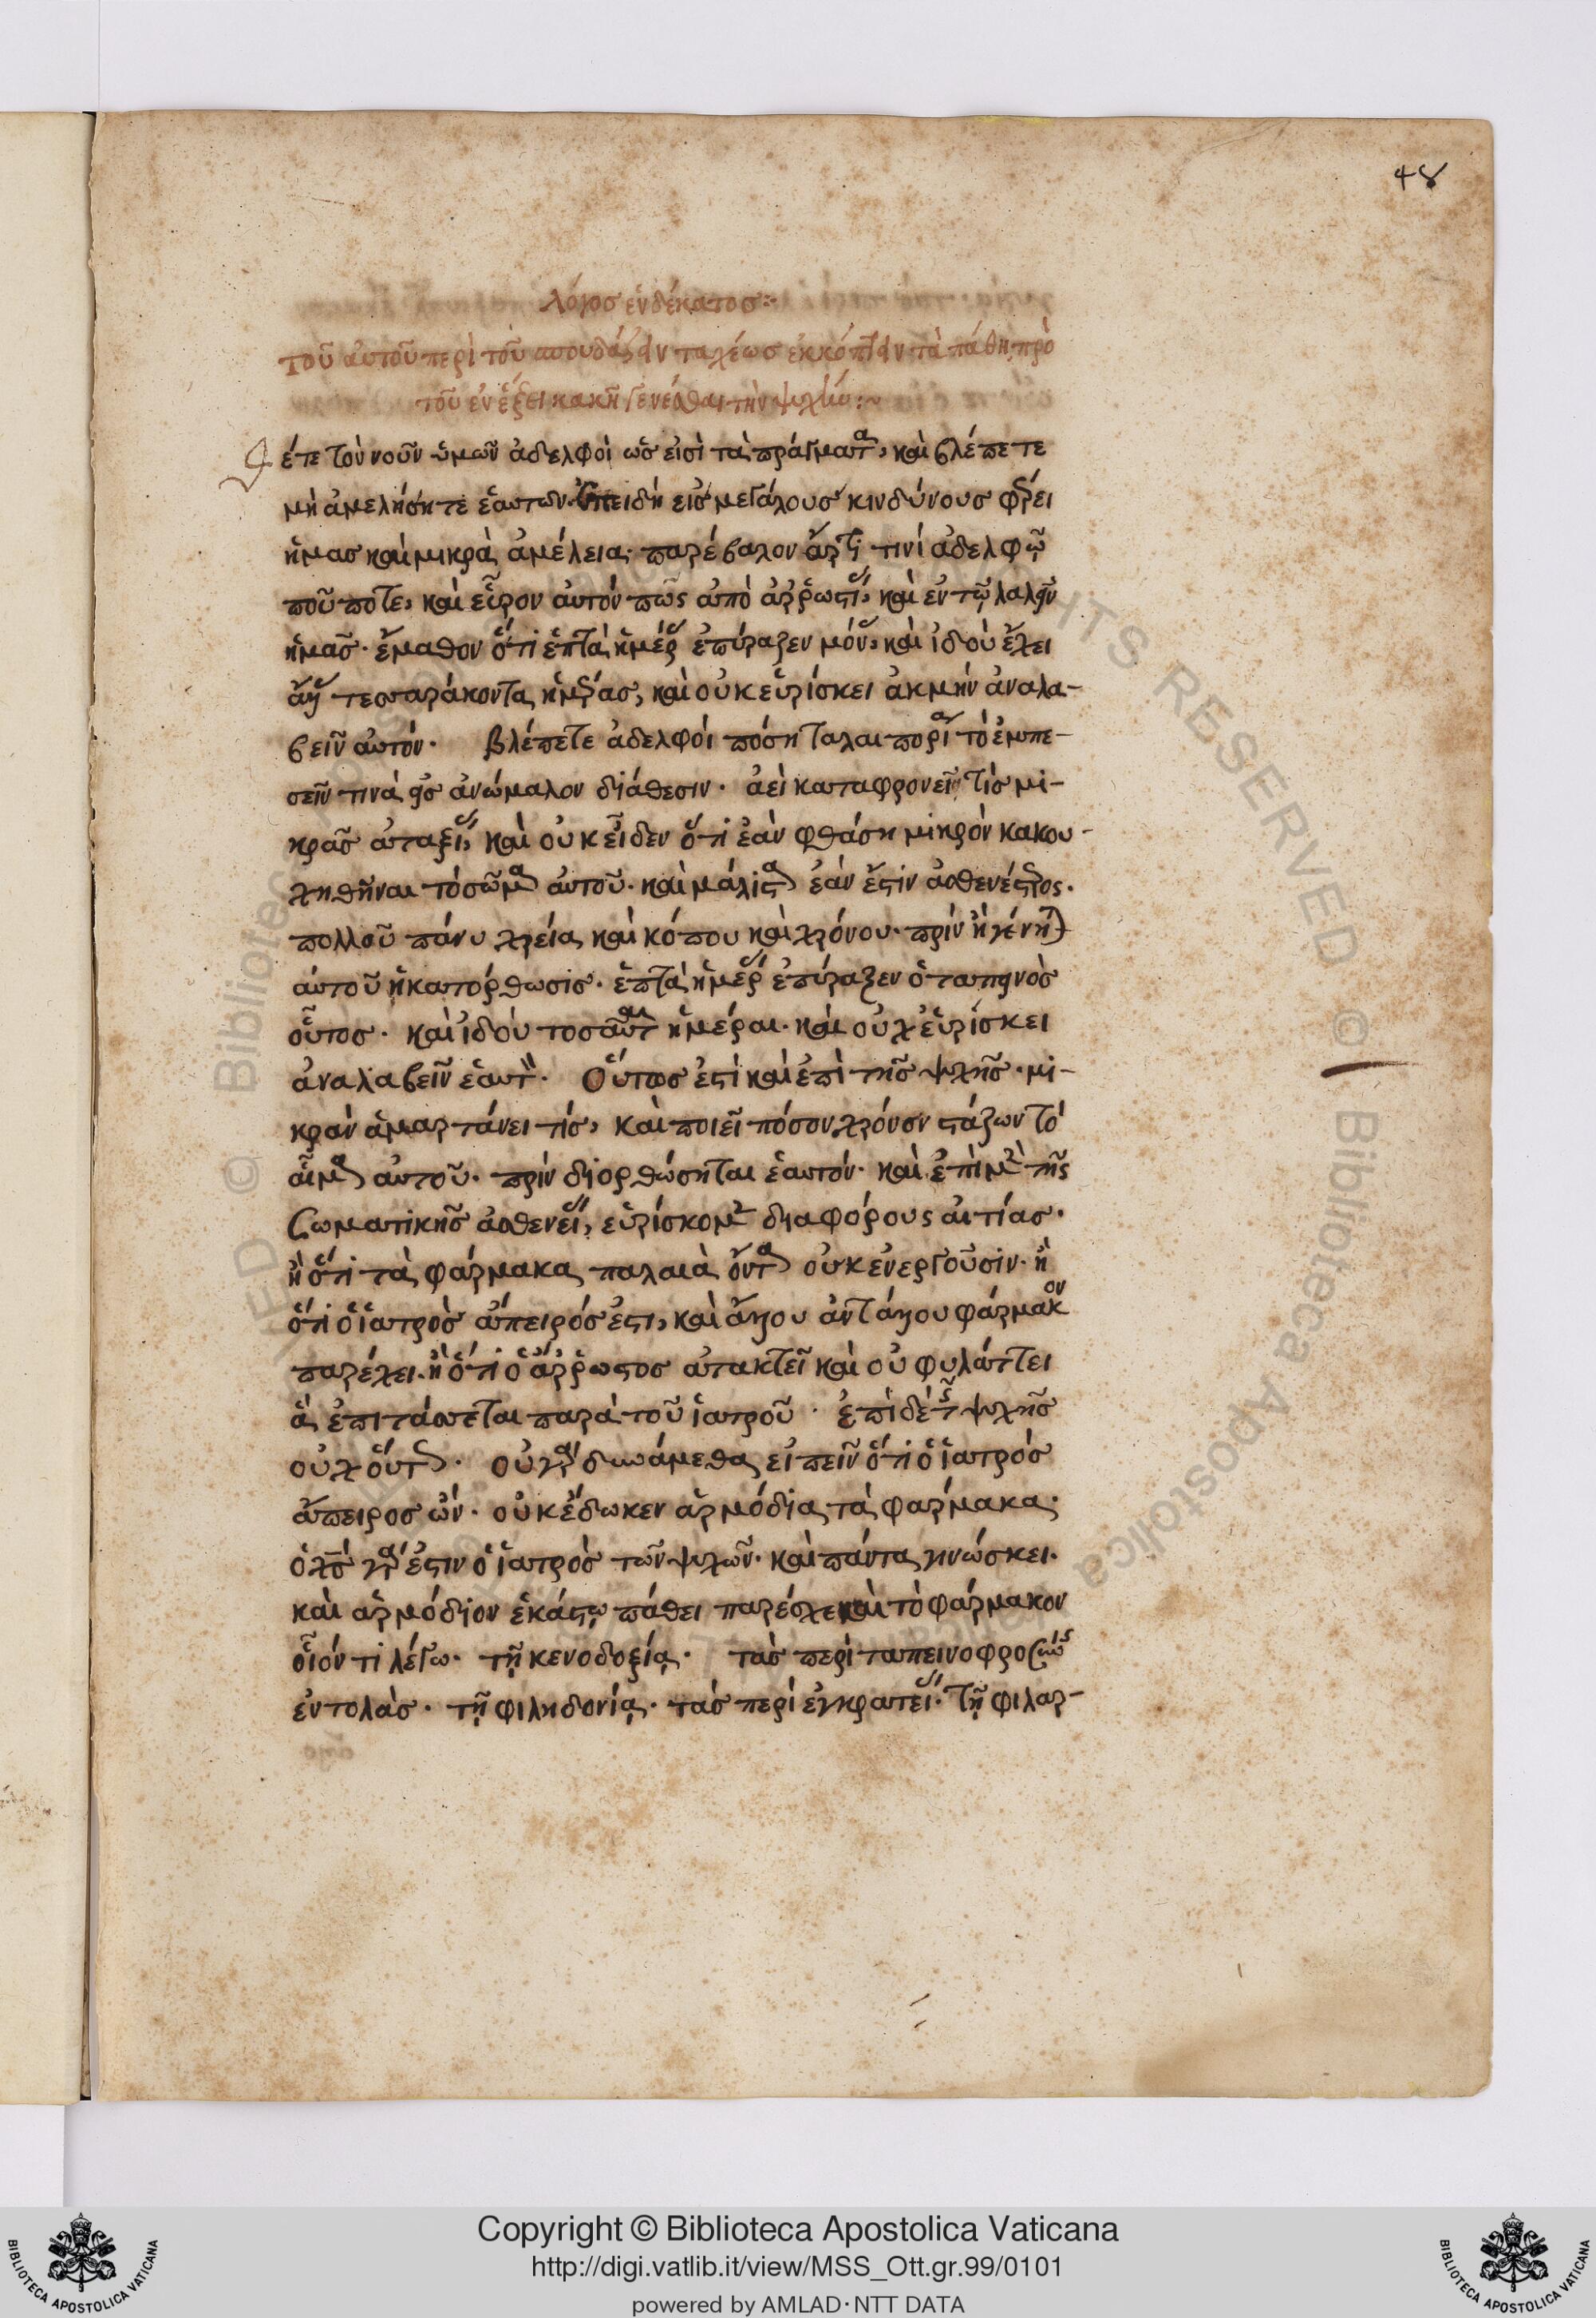 48
λόγος ἑνδέκατος:
τοῦ αὐτοῦ περὶ τοῦ σπουδάζειν ταχέως ἐκκόπτειν τὰ πάθη, πρὸ
τοῦ ἐν ἕξει κακῇ γενέσθαι τὴν ψυχήν:~
έτε τὸν νοῦν ὑμῶν ἀδελφοὶ ὡς εἰσὶ τὰ πράγματα, καὶ βλέπετε
μὴ ἀμελήσητε ἑαυτῶν. ἐπειδὴ εἰς μεγάλους κινδύνους φέρει
ἡμας καὶ μικρὰ ἀμέλεια. παρέβαλον ἄρτι τινί ἀδελφῷ
ποῦ ποτε, καὶ εὗρον αὐτόν πῶς ἀπὸ ἀρρωστίας, καὶ ἐν τῷ λαλεῖν
ἡμᾶς. ἔμαθον ὅτι ἑπτὰ ἡμέρας ἐπύραξεν μόνας, καὶ ἰδοὺ ἔχει
ἄλλας τεσσαράκοντα ἡμέρας, καὶ οὐκ εὑρίσκει ἀκμήν ἀναλα-
βεῖν αὐτόν. βλέπετε ἀδελφοί πόση ταλαιπορία τὸ ἐμπε-
σεῖν τινὰ εἰς ἀνώμαλον διάθεσιν. ἀεὶ καταφρονεῖ τίς μι-
κρᾶς ἀταξίας, καὶ οὐκ εἶδεν ὅτι ἐὰν φθάση μικρὸν κακου-
χηθῆναι τὸ σῶμα αὐτοῦ. καὶ μάλιστα ἐάν ἐστιν ἀσθενέστερος.
πολλοῦ πάνυ χρεία καὶ κόπου καὶ χρόνου. πρίν ἢ γένηται
αὐτοῦ ἡ κατορθωσις. ἑπτὰ ἡμέρας ἐπύραξεν ὁ ταπεινὸς
οὗτος. καὶ ἰδοὺ τοσαῦται ἡμέραι. καὶ οὐχ εὑρίσκει
ἀναλαβεῖν ἑαυτὸν. Οὕτως ἐστὶ καὶ ἐπὶ τῆς ψυχῆς. μι-
κρὸν ἁμαρτάνει τίς, καὶ ποιεῖ πόσον χρόνον στάζων τὸ
αἷμα αὐτοῦ. πρὶν διορθώσηται ἑαυτόν. καὶ ἐπὶ μὲν τῆς
σωματικῆς ἀσθενείας, εὑρίσκομεν διαφόρους αἰτίας.
ἢ ὅτι τὰ φάρμακα παλαιὰ ὄντα οὐκ ἐνεργοῦσιν. ἢ
ὅτι ὁ ἰατρὸς ἄπειρός ἐστι, καὶ ἄλλου ἀντ ἄλλου φάρμακον
παρέχει. ἢ ὅτι ὁ ἄρρωστος ἀτακτεῖ καὶ οὐ φυλάττει
ἃ ἐπιτάσσεται παρὰ τοῦ ἰατροῦ. ἐπὶ δέ τῆς ψυχῆς
οὐχ οὕτως. οὐ γὰρ δυνάμεθα εἰπεῖν ὅτι ὁ ἰατρός
ἄπειρος ὢν. οὐκ ἔδωκεν ἁρμόδια τὰ φαρμακα.
ὁ χς γὰρ ἐστιν ὁ ἰατρὸς τῶν ψυχῶν. καὶ πάντα γινώσκει.
καὶ ἁρμόδιον ἑκάστῳ πάθει παρέσχε καὶ τὸ φάρμακον
οἷόν τι λέγω. τῇ κενοδοξίᾳ. τὰς περὶ ταπεινοφροσύνης
ἐντολάς. τῇ φιληδονίᾳ. τὰς περὶ ἐγκρατείας. τῇ φιλαρ-
Copyright © Biblioteca Apostolica Vaticana
http://digi.vatlib.it/view/MSS_Ott.gr.99/0101
powered by AMLAD·NTT DATA